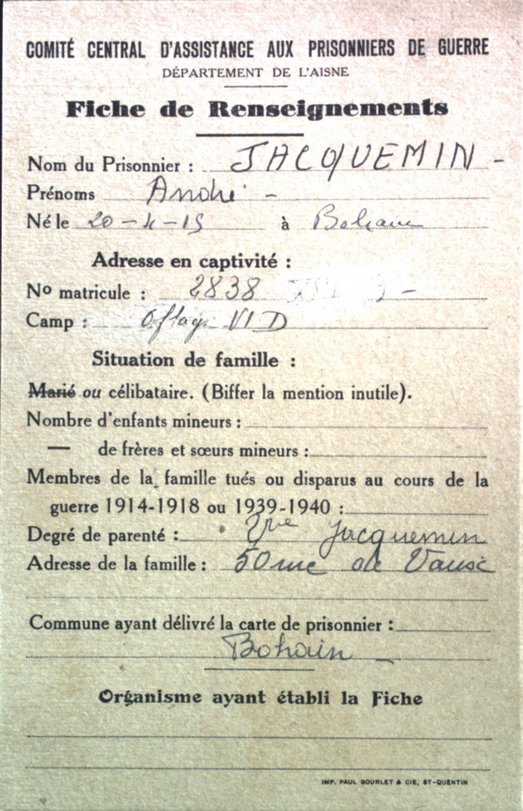 COMITÉ CENTRAL D'ASSISTANCE AUX PRISONNIERS DE GUERRE
DÉPARTEMENT DE L'AISNE
Fiche de Renseignements
Nom du Prisonnier : JACQUEMIN -
Prénoms André -
Né le 20-4-15 à Bohain
Adresse en captivité :
No matricule : 2838
Camp : Oflag VI D
Situation de famille :
Marié ou célibataire. (Biffer la mention inutile).
Nombre d'enfants mineurs :
— de frères et sœurs mineurs :
Membres de la famille tués ou disparus au cours de la
guerre 1914-1918 ou 1939-1940 :
Degré de parenté : Jacquemin
Adresse de la famille : 50 rue de Vaux
Commune ayant délivré la carte de prisonnier :
Bohain -
Organisme ayant établi la Fiche
IMP. PAUL BOURLET & CIE, ST-QUENTIN